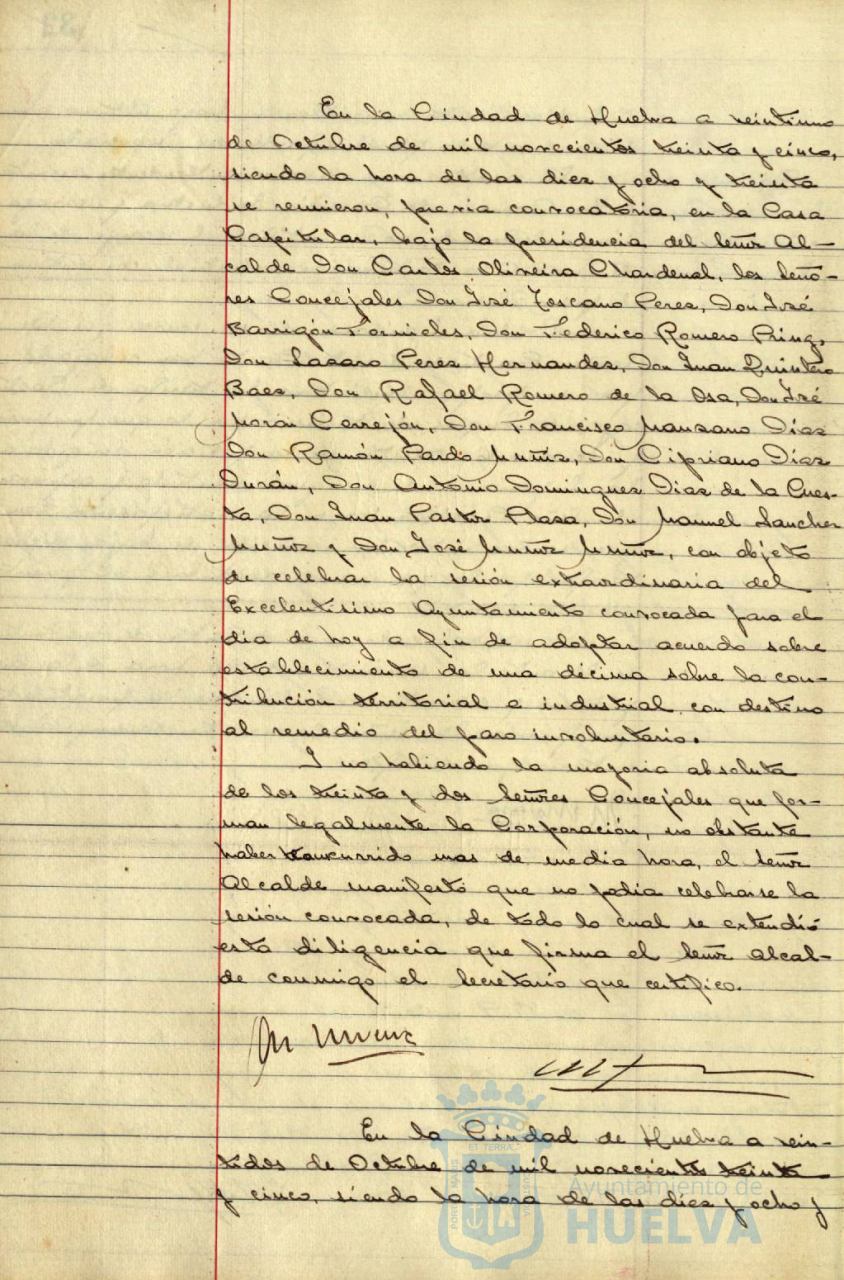 En la Ciudad de Huelva a veintiuno
de Octubre de mil novecientos treinta y cinco,
siendo la hora de las diez y ocho y treinta
se reunieron, previa convocatoria, en la Casa
Capitular, bajo la presidencia del Señor Al-
calde Don Carlos Oliveira Chardenal, los Seño-
res Concejales Don José Toscano Perez, Don José
Barrigón Fornieles, Don Federico Romero Ring,
Don Lazaro Perez Hernandez, Don Juan Quintero
Baez, Don Rafael Romero de la Osa, Don José
Morón Cerrejón, Don Francisco Manzano Díaz
Don Ramón Pardo Muñiz, Don Cipriano Díaz
Durán, Don Antonio Dominguez Diaz de la Cues-
ta, Don Juan Pastor Plaza, Don Manuel Sanchez
Muñoz y Don José Muñoz Muñoz, con objeto
de celebrar la sesión extraordinaria del
Excelentisimo Ayuntamiento convocada para el
día de hoy a fin de adoptar acuerdo sobre
establecimiento de una décima sobre la con-
tribución territorial e industrial con destino
al remedio del paro involuntario.
Y no habiendo la mayoria absoluta
de los treinta y dos Señores Concejales que for-
man legalmente la Corporación, no obstante
haber transcurrido mas de media hora, el Señor
Alcalde manifestó que no podia celebrarse la
sesión convocada, de todo lo cual se extendió
esta diligencia que firma el Señor Alcal-
de conmigo el Secretario que certifico.
En la Ciudad de Huelva a vein-
tidos de Octubre de mil novecientos treinta
y cinco, siendo la hora de las diez y ocho y
Ayuntamiento de
HUELVA